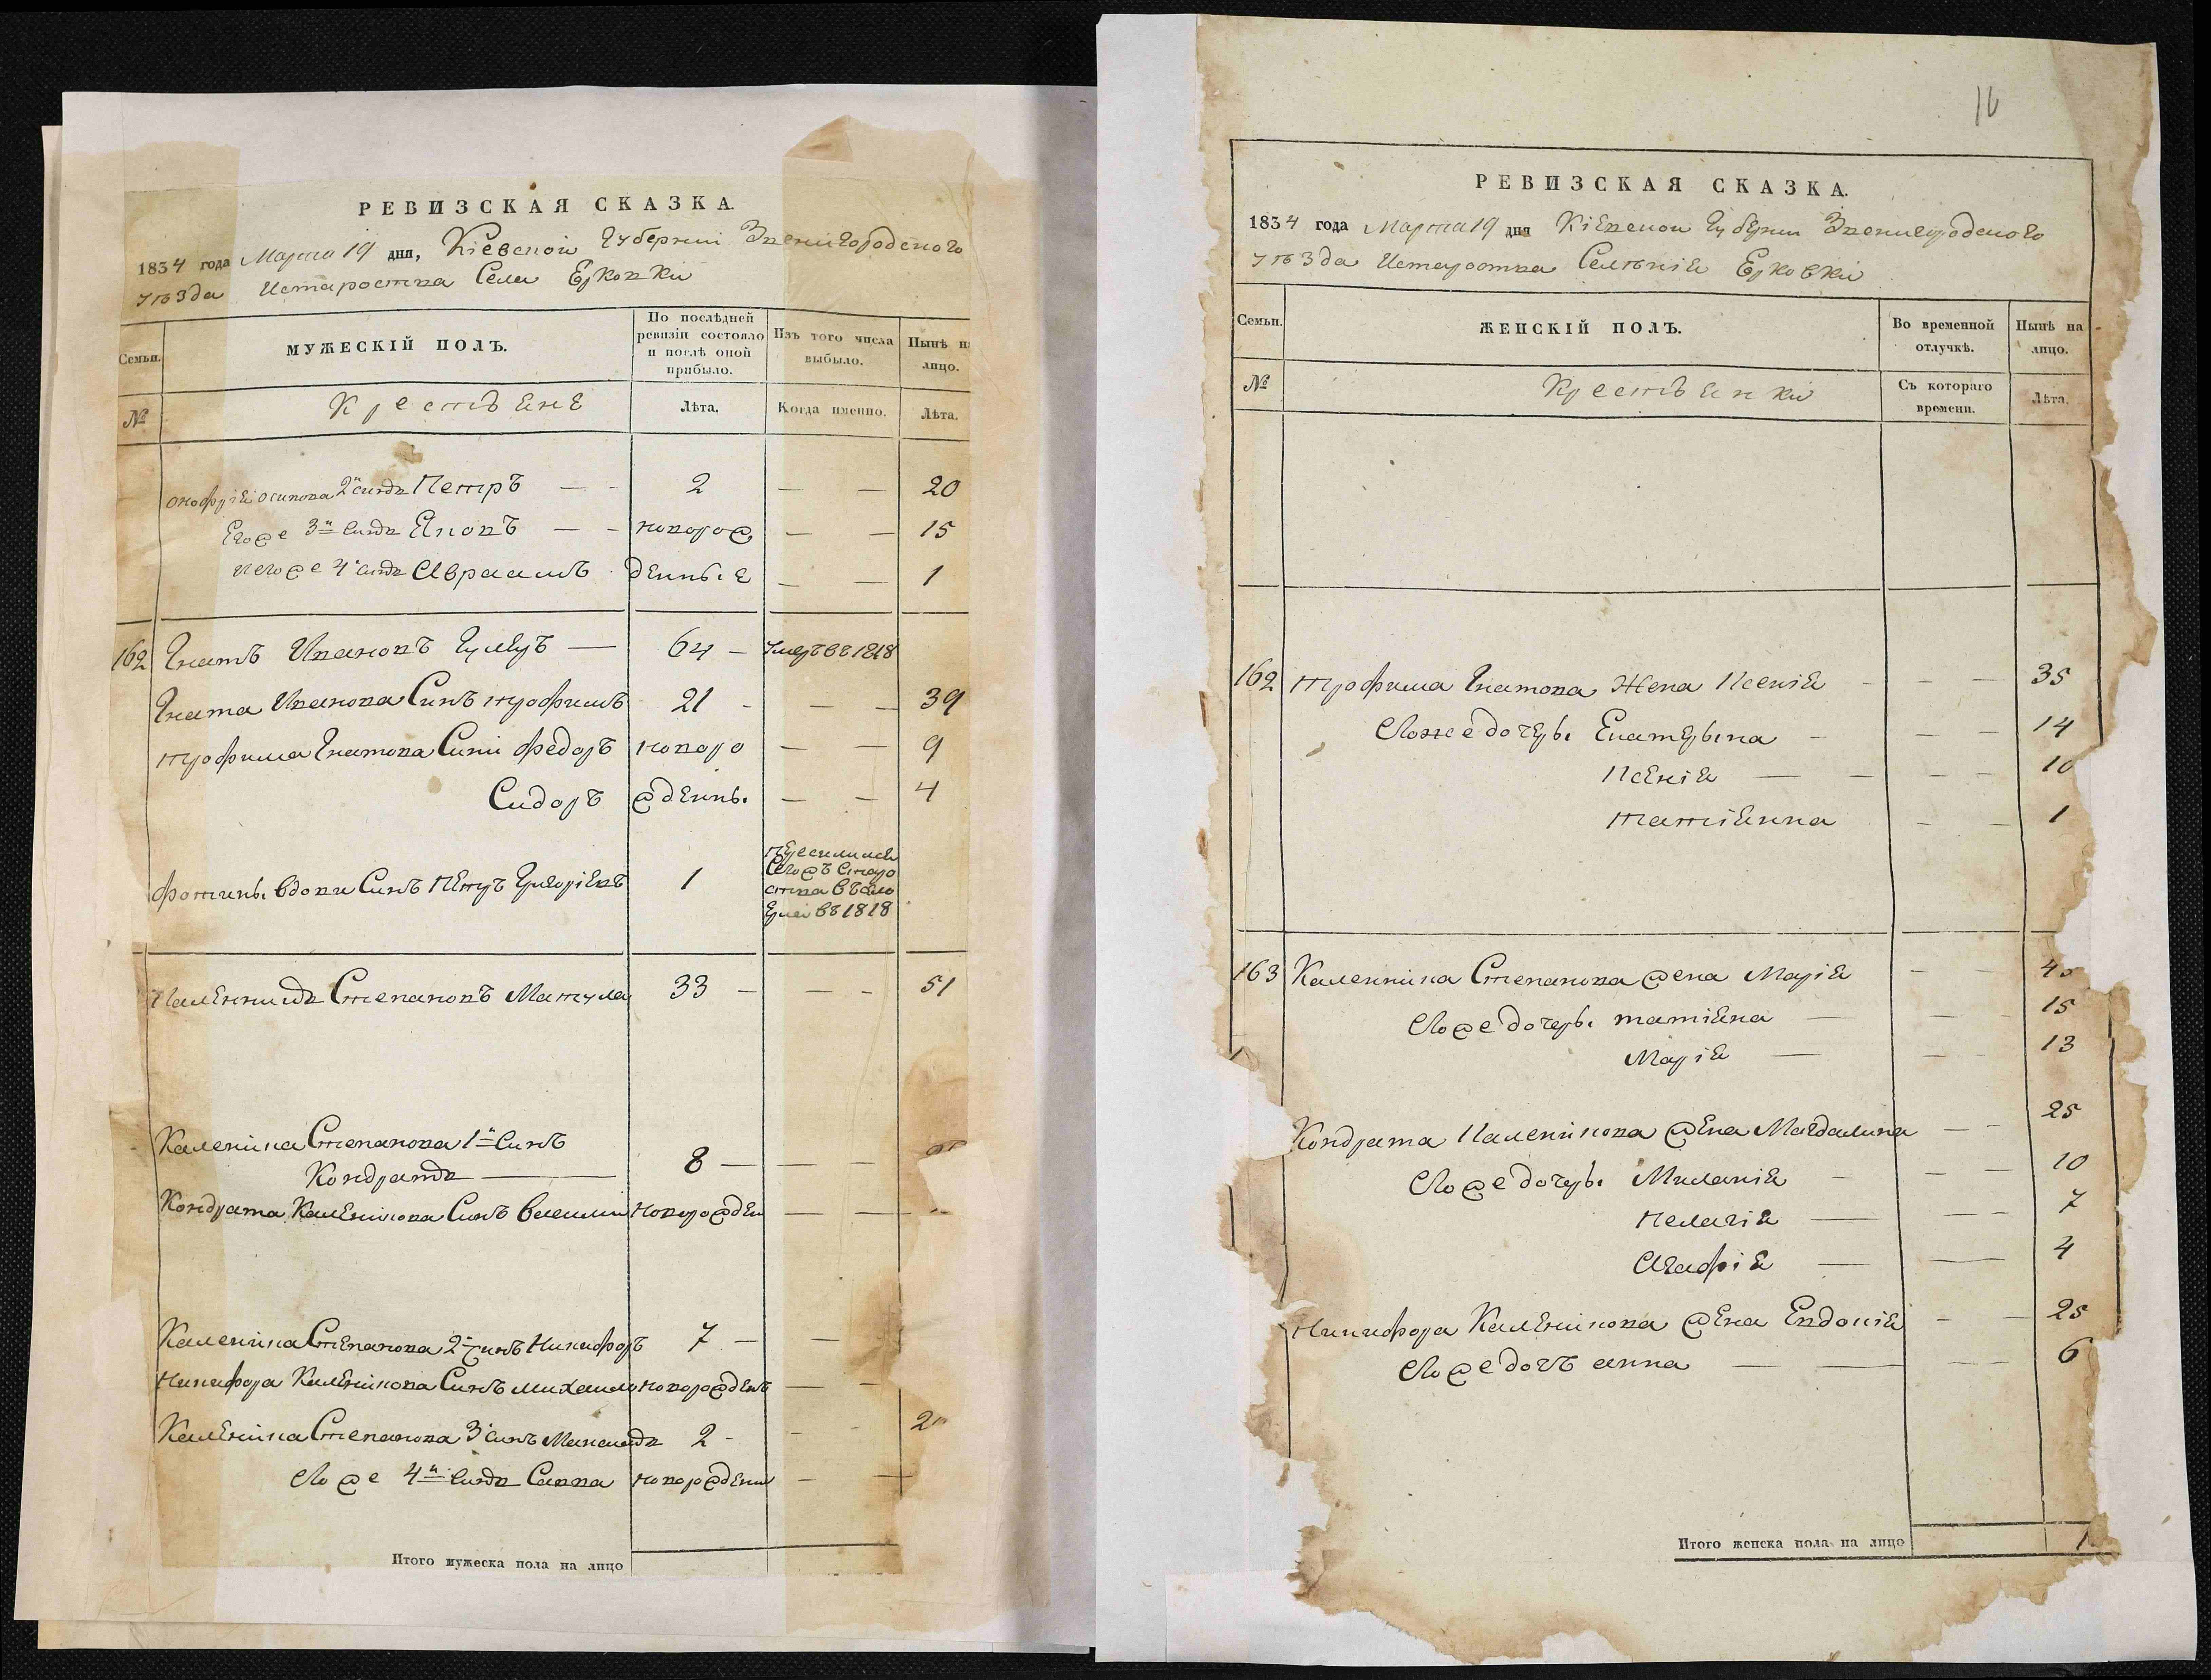 РЕВИЗСКАЯ СКАЗКА.
1834 года Марта 19 дня, Кіевской Губерніи Звенигородского
уѣзда Староства Села Ерковки
Семьи.
МУЖЕСКІЙ ПОЛЪ.
По послѣдней ревизіи состояло и послѣ оной прибыло.
Изъ того числа выбыло.
Нынѣ на лицо.
№
Крестьяне
Лѣта.
Когда именно.
Лѣта.
Онофрія Осипова 2й синъ Петръ — - 2 — — 20
Егоже 3й Синъ Яковъ — - новорож — — 15
Егоже 4й Синъ Авраамъ денные — — 1
162 Гнатъ Ивановъ — 64 – умеръ въ 1818
Гната Иванова Синъ трофимъ 21 - — — 39
трофима Гнатова Сини федоръ новоро — — 9
Сидоръ жденны. — — 4
фотины вдови Синъ Петръ Григоріевъ 1 въ 1818
Каленникъ Степановъ Матула 33 — — - 51
Калениka Степанова 1й Синъ
Кондратъ — 8 — — —
Кондрата Каленикова Синъ новорожден — —
Каленика Степанова 2й Синъ Никифоръ 7 — —
Никифора Каленикова Синъ михаило новорожденъ — -
Каленика Степанова 3й Синъ 2 - - - 2
Егоже 4й Синъ Савва новорожденн — —
Итого мужеска пола на лицо
РЕВИЗСКАЯ СКАЗКА.
1834 года Марта 19 дня Кіевской Губерніи Звенигородского
уѣзда Староства Селенія Ерковки
Семьи.
ЖЕНСКІЙ ПОЛЪ.
Во временной отлучкѣ.
Нынѣ на лицо.
№
Крестьянки
Съ котораго времени.
Лѣта.
162 трофима Гнатова Жена Ксенія - - — 35
Егоже дочеры Екатерына - — — 14
Ксенія — — — — 10
татіянна — — 1
163 Каленника Степанова жена Марія —
Егоже дочеры татіяна — — — 15
Марія — — — 13
Кондрата Каленикова жена Магдалина — — 25
Егоже дочеры Миланія - — — 10
Пелагія — — - 7
Агафія — — 4
Никифора Каленикова жена Евдокія - — 25
Егоже дочъ анна — — — 6
Итого женска пола на лицо